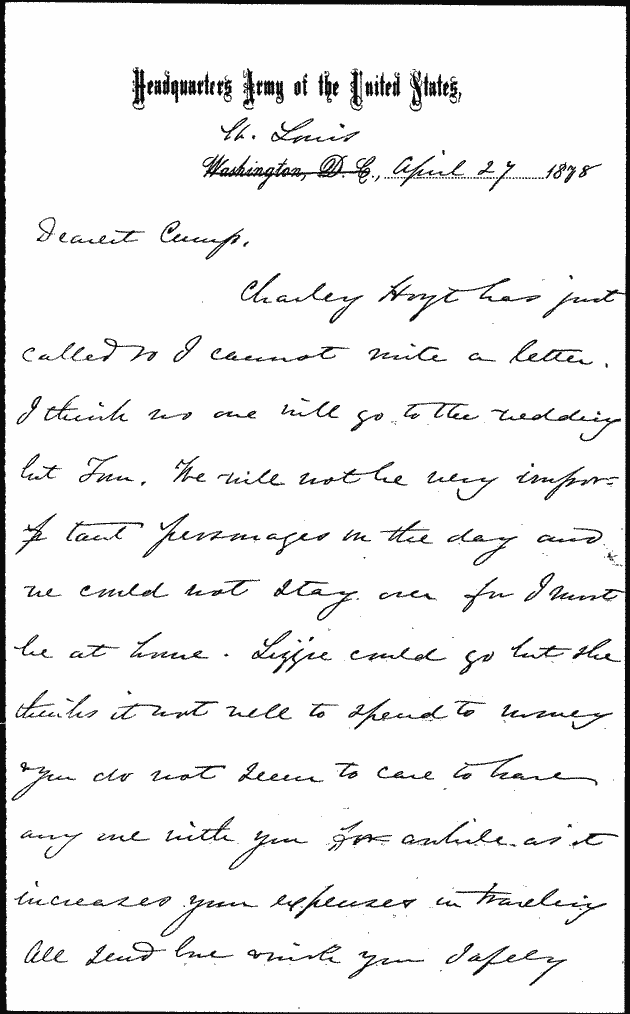 Headquarters Army of the United States,
St. Louis
Washington, D. C., April 27 1878
Dearest Cump.
Charley Hoyt has just
called so I cannot write a letter.
I think no one will go to the wedding
but Tom. We will not be very impor-
tant personages on the day and
we could not stay over for I must
be at home. Lizzie could go but she
thinks it not well to spend to money
& you do not seem to care to have
any one with you for awhile as it
increases your expenses in traveling
All send love & wish you safely